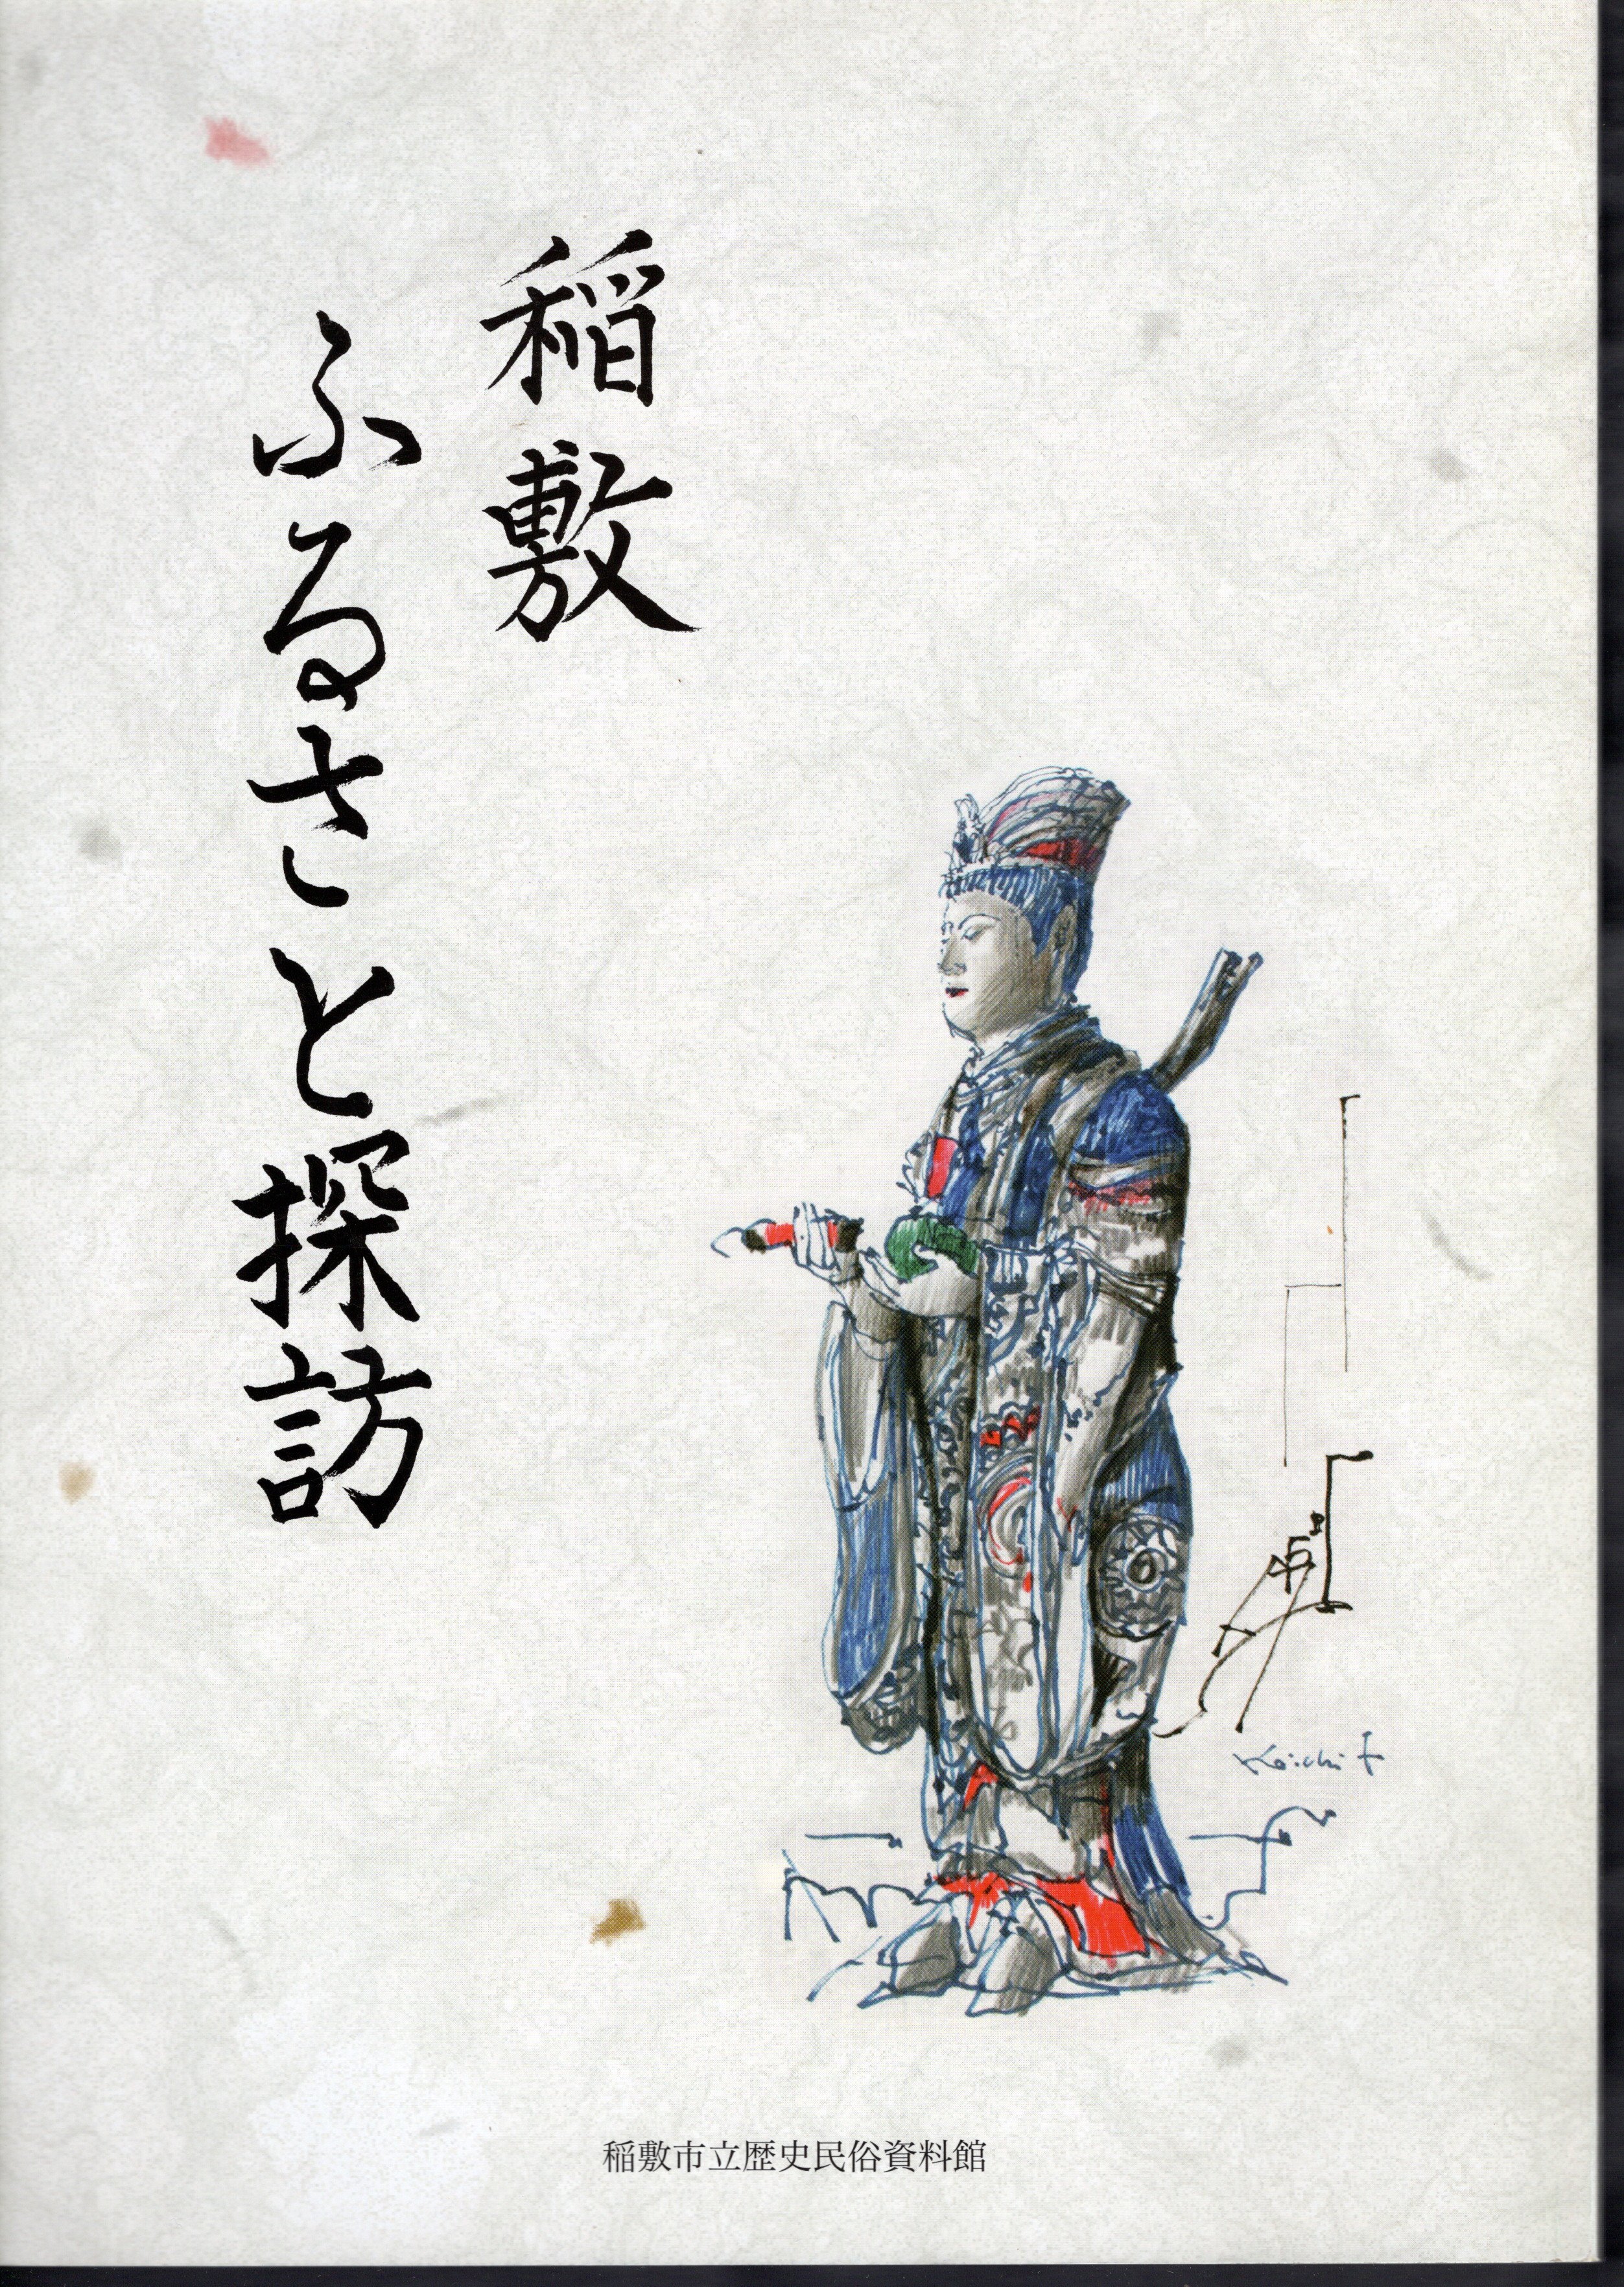 稲敷
ふるさと探訪
Koichi t
稲敷市立歴史民俗資料館